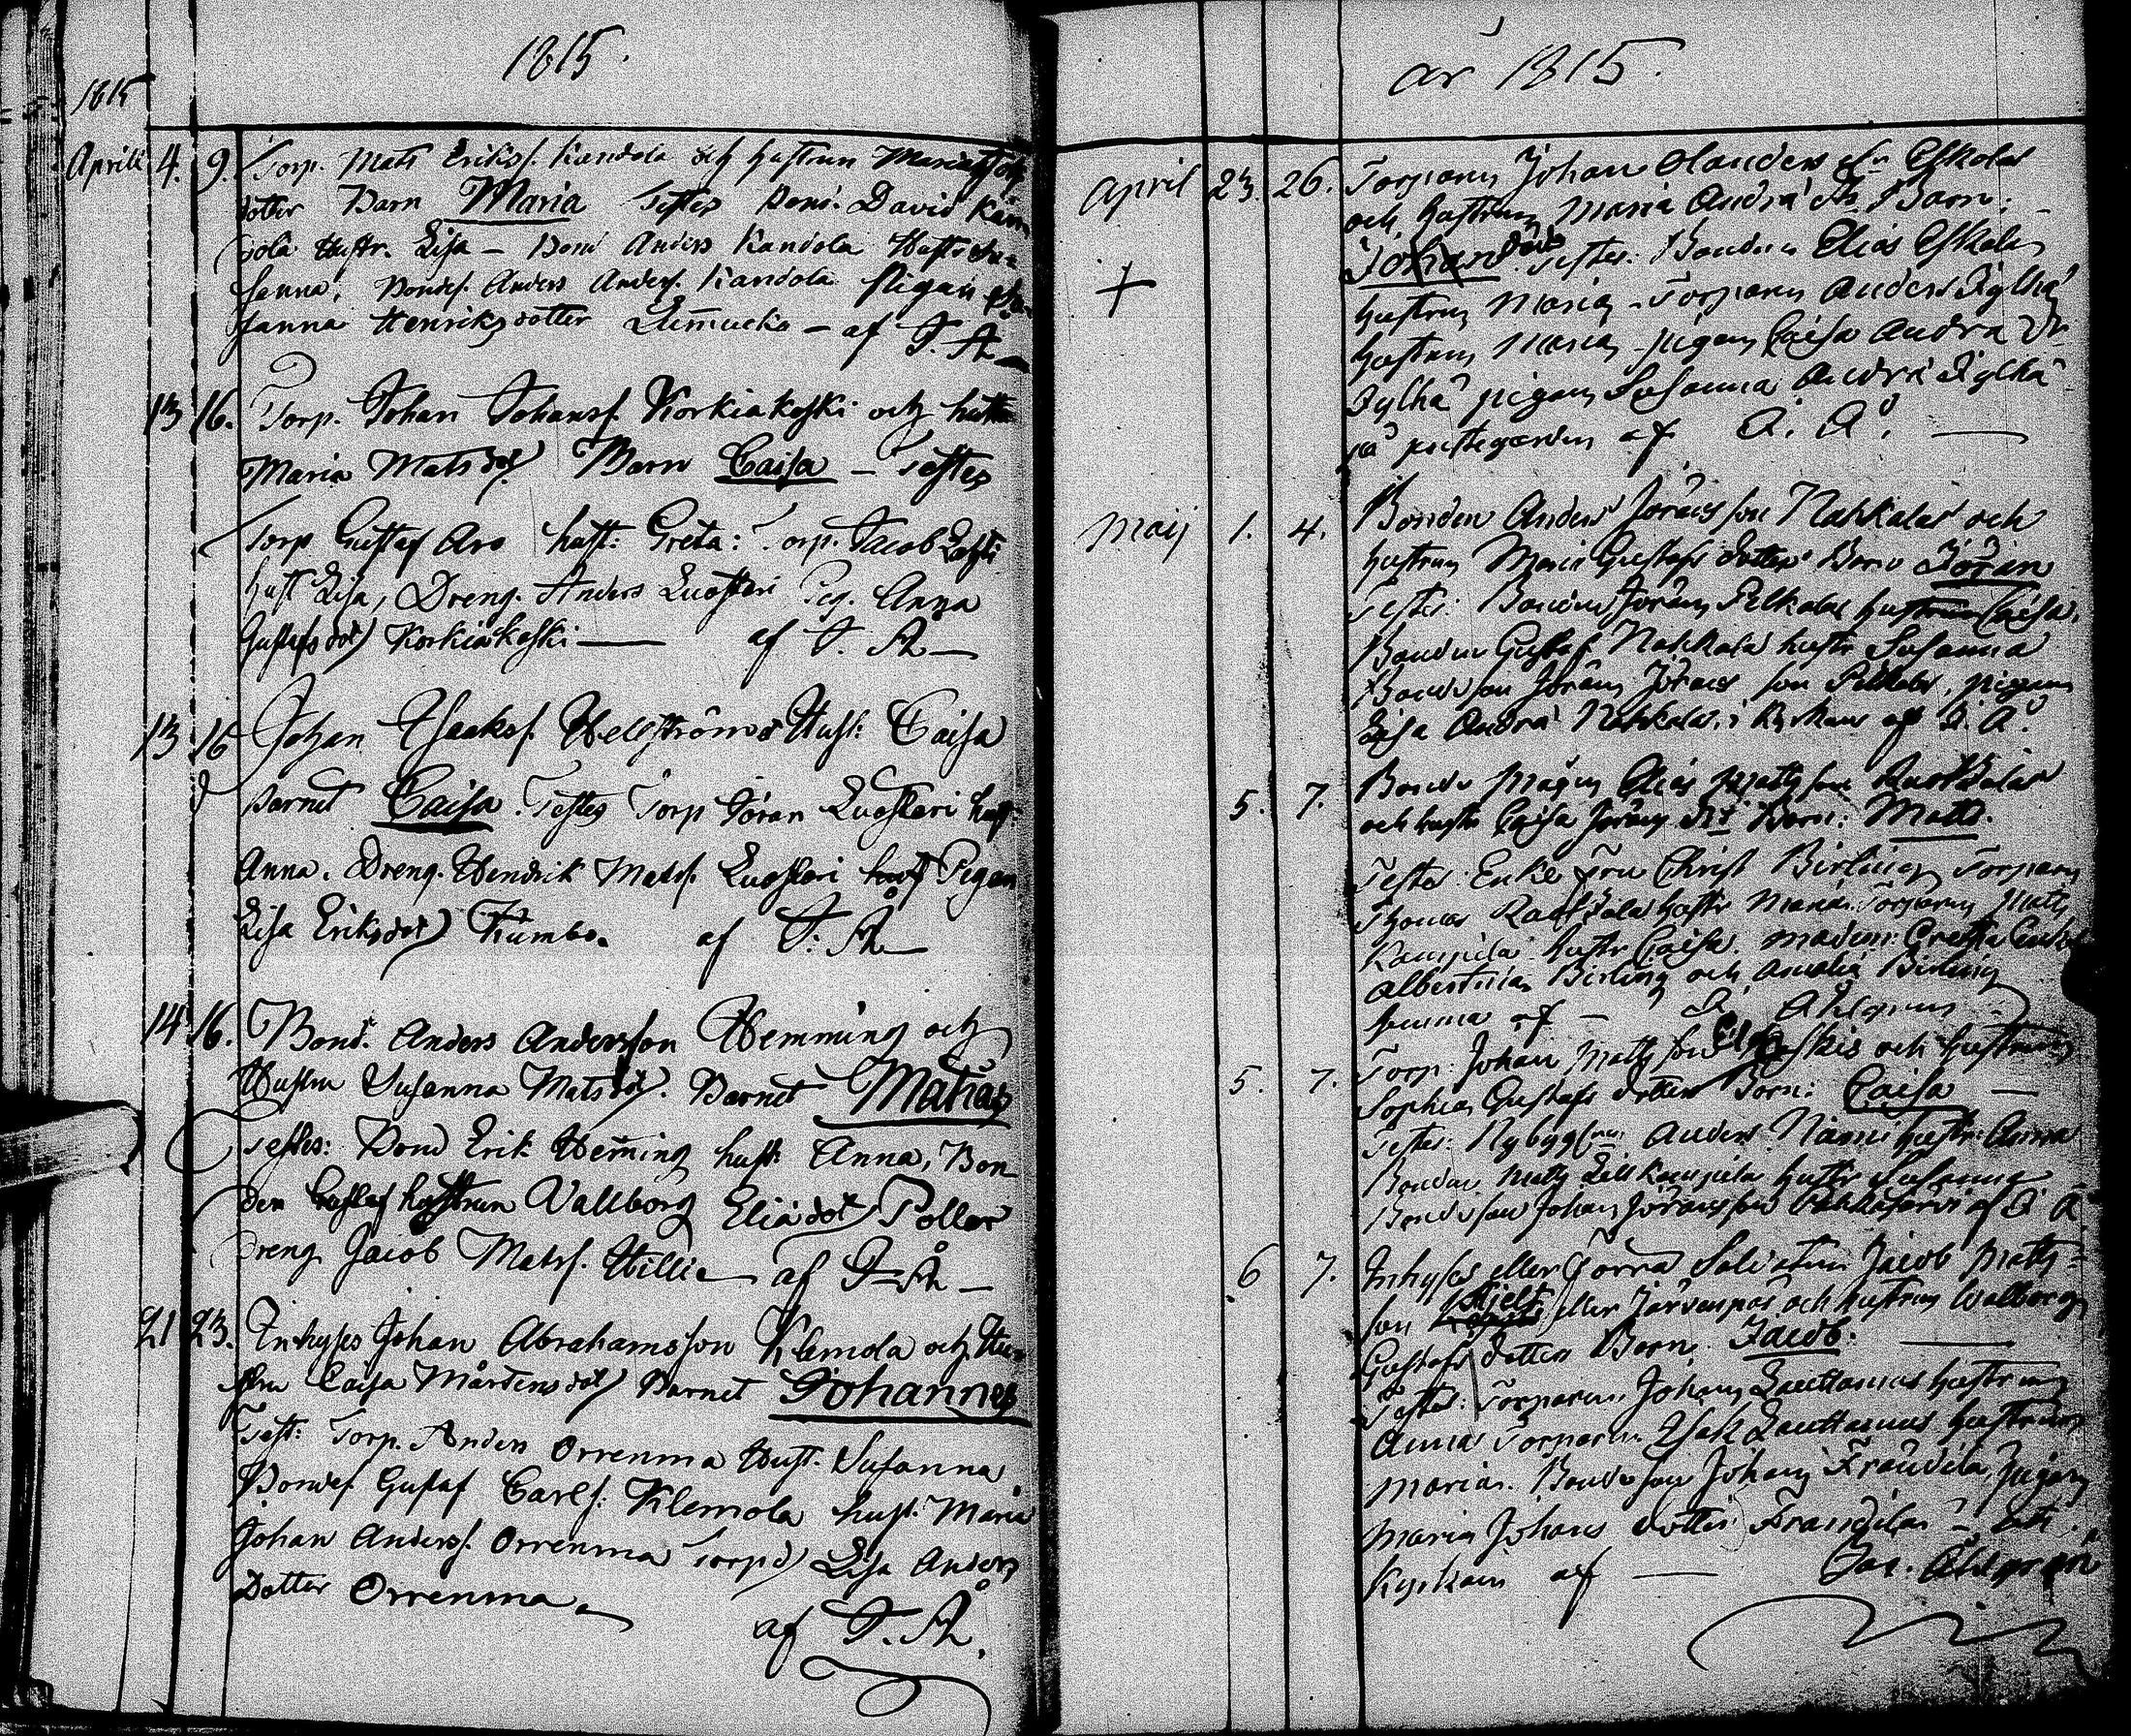 1815.
1815
Aprill 4. 9. Torp. Mats Erikss. Kandola och hustrun Maria
dotter Barn Maria Testes Bond. David Kan
dola Hustr. Lisa – Bond Anders Kandola Hustr Su=
sanna, Bondes. Anders Anders. Kandola Pigan Su
sanna Henriksdotter – af J. Å
13 16. Torp. Johan Johanss. Korkiakoski och hust
Maria Matsdot Barn Caisa – Testes
Torp Gustaf Aro hust: Greta: Torp. Jacob
hust Lisa, Dreng. Anders Luostari Pig. Anna
Gustafsdot Korkiakoski — af J. Å —
13 16 Johan Isaakss. Hellströms Hust: Caisa
Barnet Caisa. Testes Torp Jöran Luostari hust:
Anna. Dreng. Hendrik Matss. Luostari Pigan
Lisa Eriksdot Kumbo. af J: Å —
14 16. Bond. Anders Andersson Hemming och
Hustru Susanna Matsdot. Barnet Mathias
Testes: Bond Erik Heming hust Anna, Bon
den Gustaf hustrun Vallborg Eliädot Pollar
Dreng Jacob Matss. Hilli — af J. Å —
21 23. Inhyses Johan Abrahamsson Klemola och Hu
stru Caisa Mårtensdot Barnet Johannes
Test: Torp. Anders Orrenma Hust. Susanna
Bondes Gustaf Carls: Klemola hust. Maria
Johan Anders. Orrenma Torpd Lisa Anders
Dotter Orrenma
af J. Å.
år 1815.
April 23. 26. Torparen Johan Olanders sn Eskolas
och hustrun Maria Andrä dr. Barn:
Johan Testes: Bonden Elias Eskola
hustrun Maria – Torparen Anders Jylhä
hustrun Maria – pigan Caisa Andrä Dr
Jylhä pigan Susanna Andrä Jylhä
på prestegården af J. Å. —
Maij 1. 4. Bonden Anders Jöransson Nahkalas och
hustrun Maria Gustafs dotter Barn Jöran
Testes: Bonden Jöran Pelkola hustrun Caisa.
Bonden Gustaf Nahkala hustr Susanna
Bondeson Jöran Jörans son Pelkola, pigan
Lisa Andrä Nahkala. i Kyrkan af J. Å.
5. 7. Bonde mågen Elias Matts son
och hustr Caisa Jörans dr Barn: Matts.
Testes: Enke Fru Christ Birling Torparen
Thomas hustr Maria. Torparen Matts
Kampila hustr Caisa. Madem: Gretha
Albertina Birling och Amalia Birling
hemma af – J. Ahlgren
5. 7. Torp: Johan Matts son och hustrun
Sophia Gustafs dotter Barn: Caisa —
Testes: Nybyggaren Anders Niemi hustr: Anna
Bonden Matts Lill Kampila hustr Susanna
Bondeson Johan Jöransson af J Å
6 7. Inhyses eller Förra Soldaten Jacob Matts=
son Hjelt eller Järvenpää och hustrun Walborg
Gustafs dotter Barn. Jacob: —
Testes: Torparen Johan Lauttamus hustrun
Anna Torparen Isak Lauttamus hustrun
Maria. Bondeson Johan Frandila, Pigan
Maria Johans dotter Frandila
Kyrkan af — Joh. Ahlgren